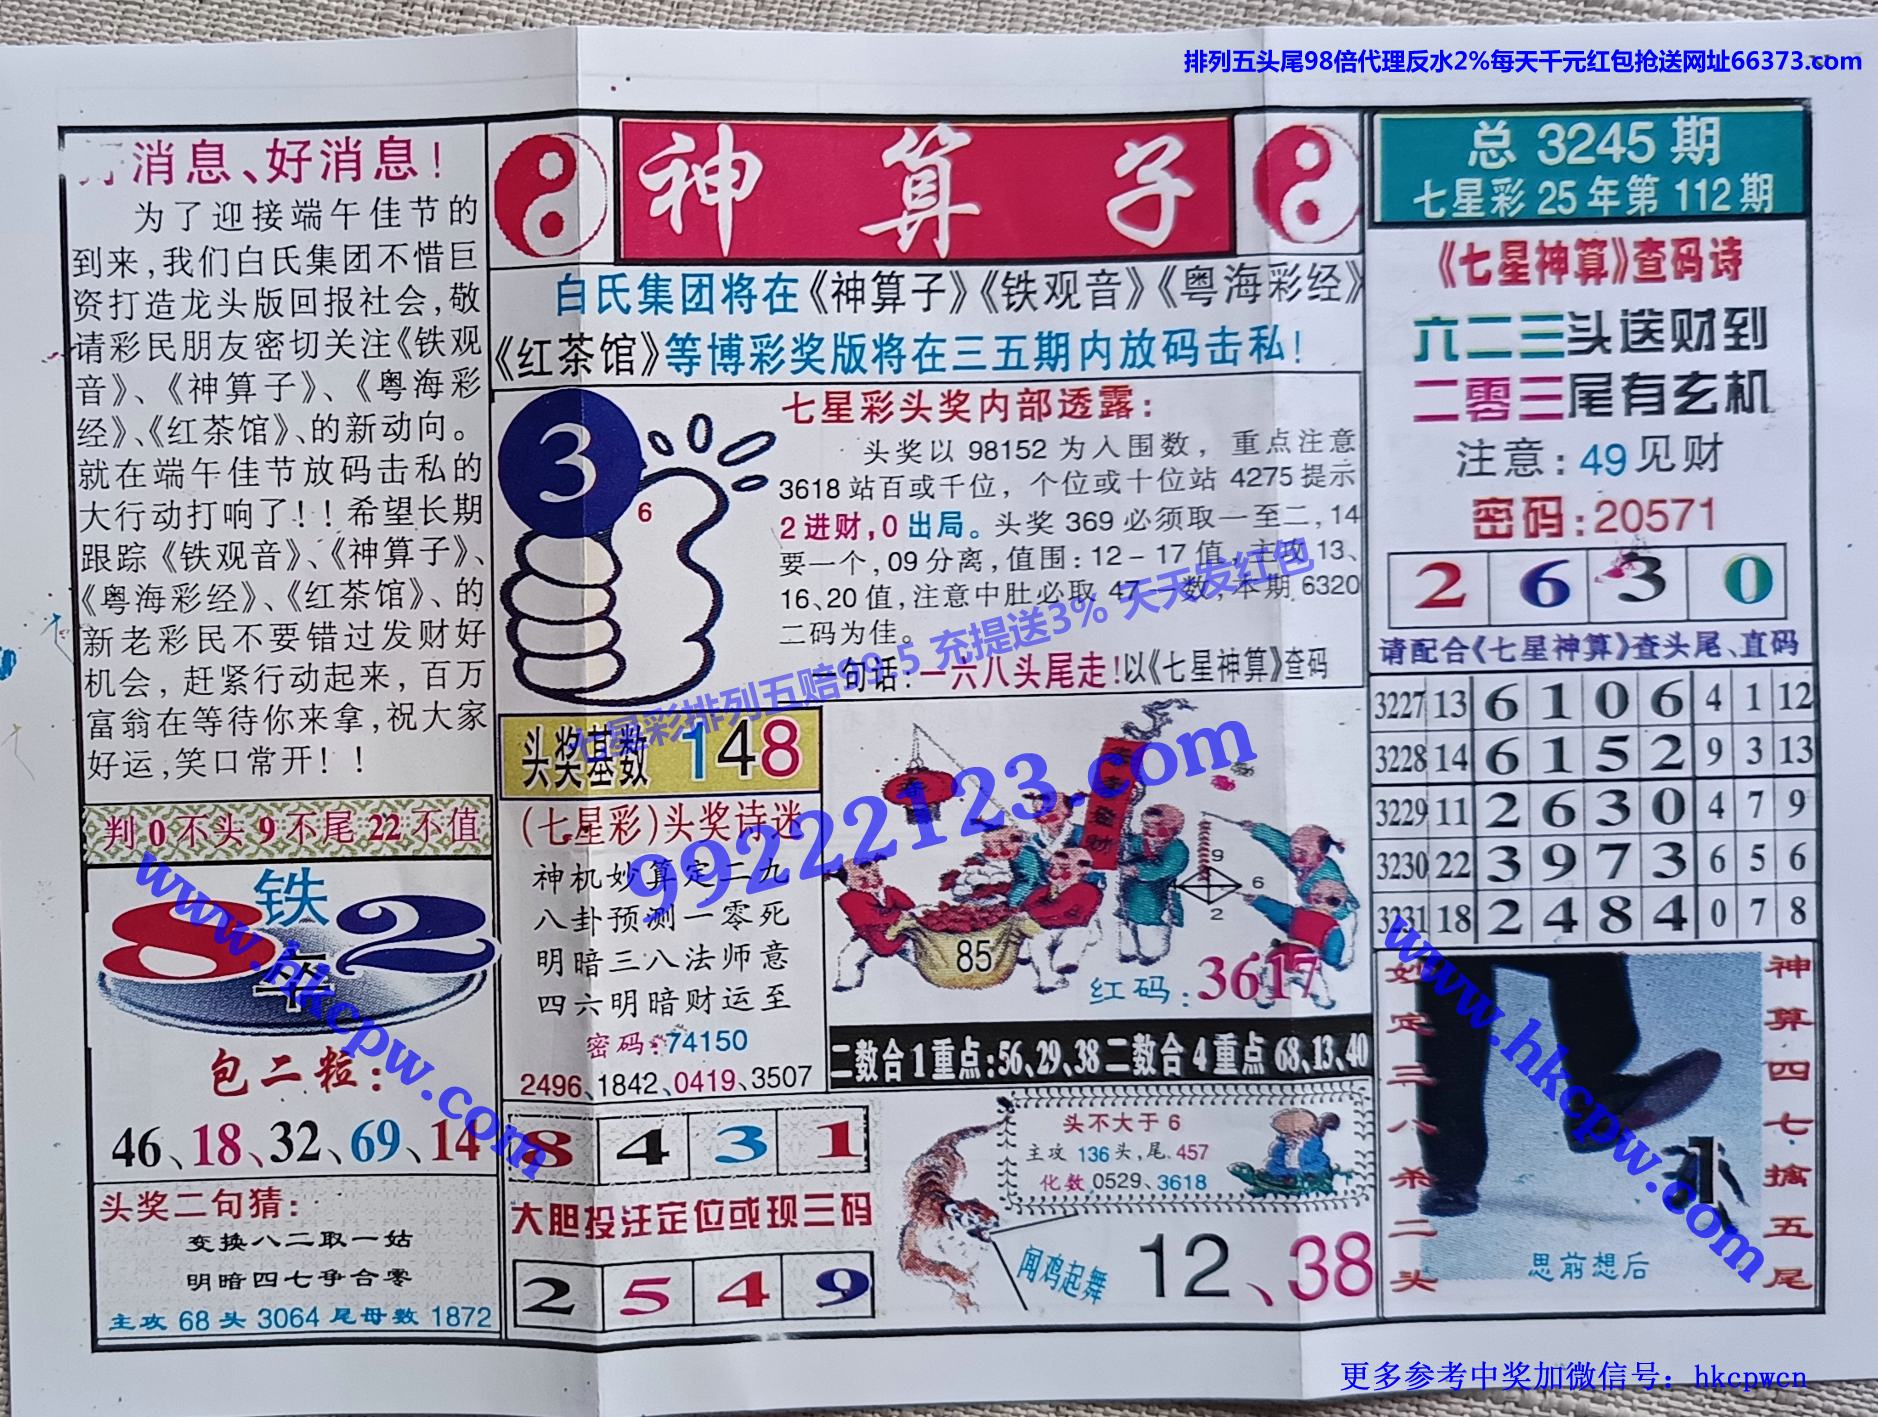 排列五头尾98倍代理反水2%每天千元红包抢送网址66373.com
消息、好消息！
为了迎接端午佳节的
到来，我们白氏集团不惜巨
资打造龙头版回报社会，敬
请彩民朋友密切关注《铁观
音》、《神算子》、《粤海彩
经》、《红茶馆》、的新动向。
就在端午佳节放码击私的
大行动打响了！！希望长期
跟踪《铁观音》、《神算子》、
《粤海彩经》、《红茶馆》、的
新老彩民不要错过发财好
机会，赶紧行动起来，百万
富翁在等待你来拿，祝大家
好运，笑口常开！！
判0不头9不尾22不值
铁
8 2
牢
包二粒：
46、18、32、69、14
头奖二句猜：
变换八二取一姑
明暗四七争合零
主攻68头3064尾母数1872
神算子
白氏集团将在《神算子》《铁观音》《粤海彩经》
《红茶馆》等博彩奖版将在三五期内放码击私！
3
6
七星彩头奖内部透露：
头奖以98152为入围数，重点注意
3618站百或千位，个位或十位站4275提示
2进财，0出局。头奖369必须取一至二，14
要一个，09分离，值围：12－17值，主攻13、
16、20值，注意中肚必取47一数，本期6320
二码为佳。
一句话：一六八头尾走！以《七星神算》查码
头奖基数148
（七星彩）头奖诗迷
神机妙算定二九
八卦预测一零死
明暗三八法师意
四六明暗财运至
密码：74150
2496、1842、0419、3507
春
85
9
6
2
红码：3617
二数合1重点：56、29、38二数合4重点68、13、40
8 4 3 1
大胆投注定位或现三码
2 5 4 9
头不大于6
主攻136头，尾457
化数0529、3618
闻鸡起舞
12、38
总3245期
七星彩25年第112期
《七星神算》查码诗
六二三头送财到
二零三尾有玄机
注意：49见财
密码：20571
2 6 3 0
请配合《七星神算》查头尾、直码
3227 13 6 1 0 6 4 1 12
3228 14 6 1 5 2 9 3 13
3229 11 2 6 3 0 4 7 9
3230 22 3 9 7 3 6 5 6
3231 18 2 4 8 4 0 7 8
妙定三八杀二头
神算四七擒五尾
思前想后
七星彩排列五赔99.5 充提送3% 天天发红包
99222123.com
www.hkcpw.com
www.hkcpw.com
更多参考中奖加微信号：hkcpwcn